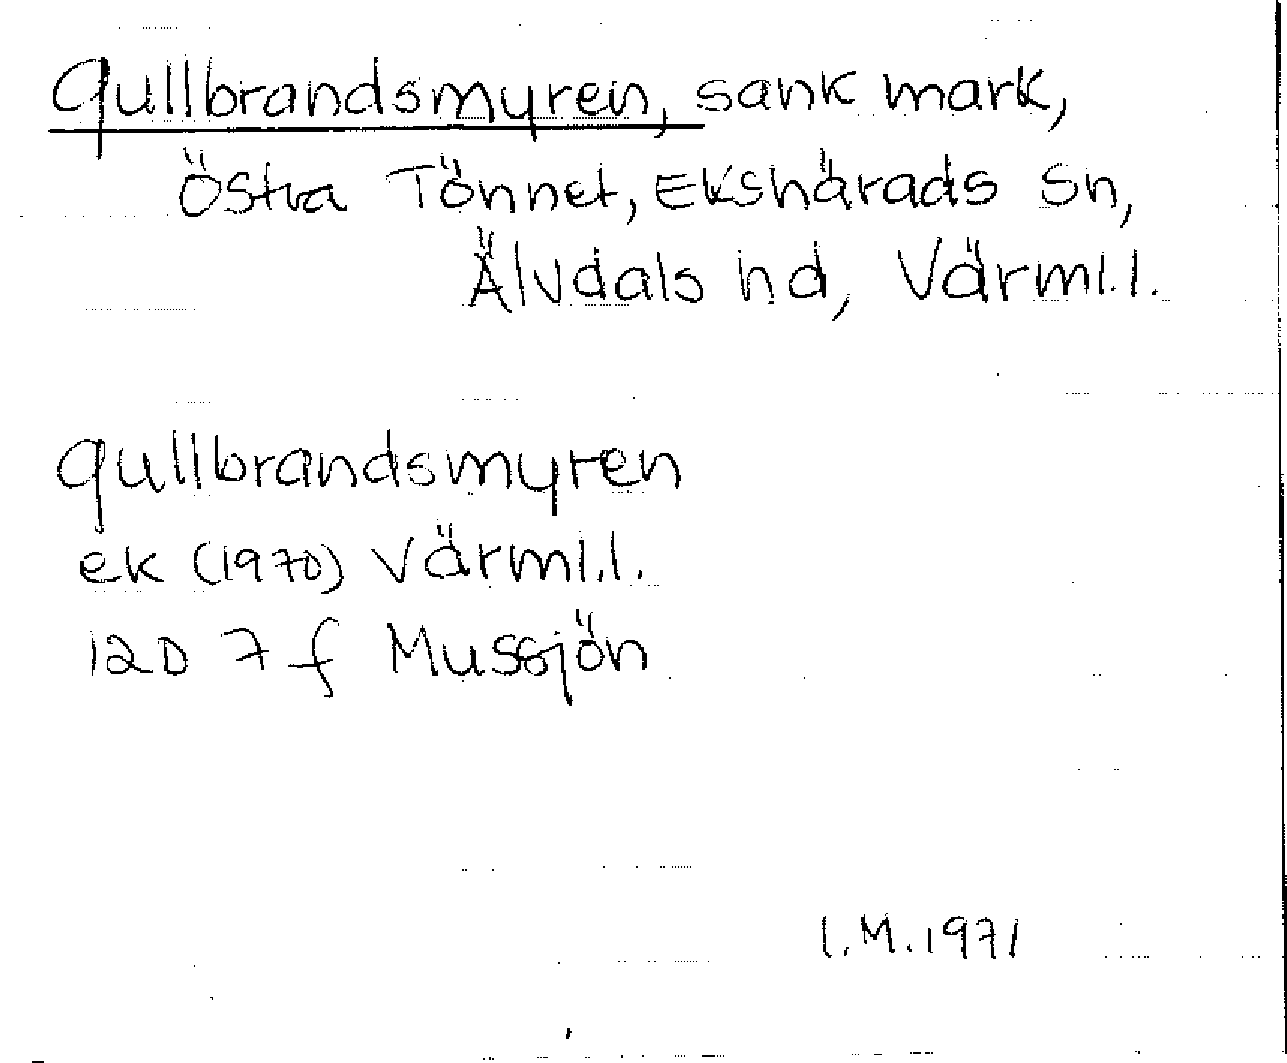 Gullbrandsmyren, sank mark,
Östra Tönnet, Ekshärads sn,
Älvdals hd, Värml.l.
Gullbrandsmyren
ek (1970) Värml.l.
12D 7f Mussjön
I.M.1971